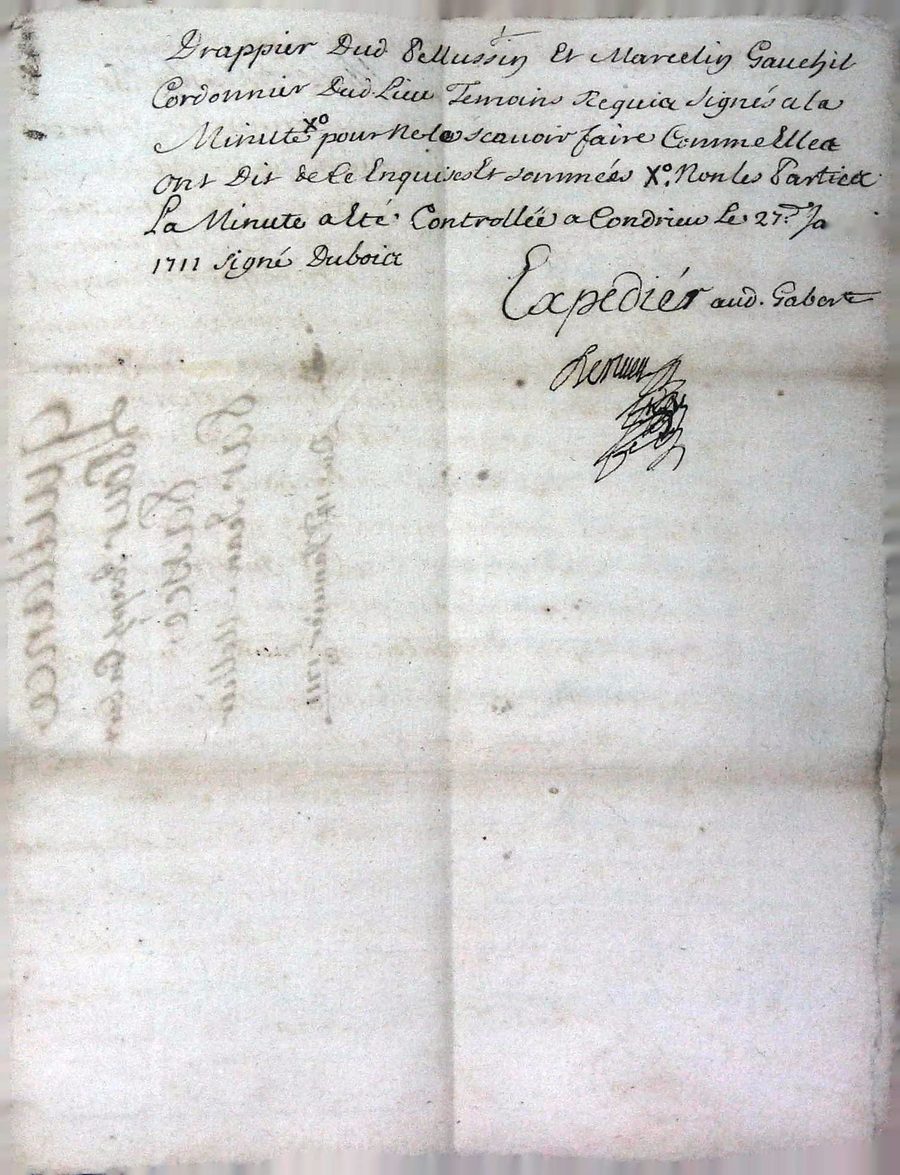 Drappier Dud Pellussin Et Marcelin Gauchil
Cordonnier Dud. Lieu Temoins Requis signés a la
Minute Xo pour ne le scavoir faire Comme Elles
ont Dit de Ce Enquises Et sommées Xo. Non les Parties
La Minute a Eté Controllëë a Condrieu Le 27e. Ja
1711 signé Dubois
Expediér aud. Gabert